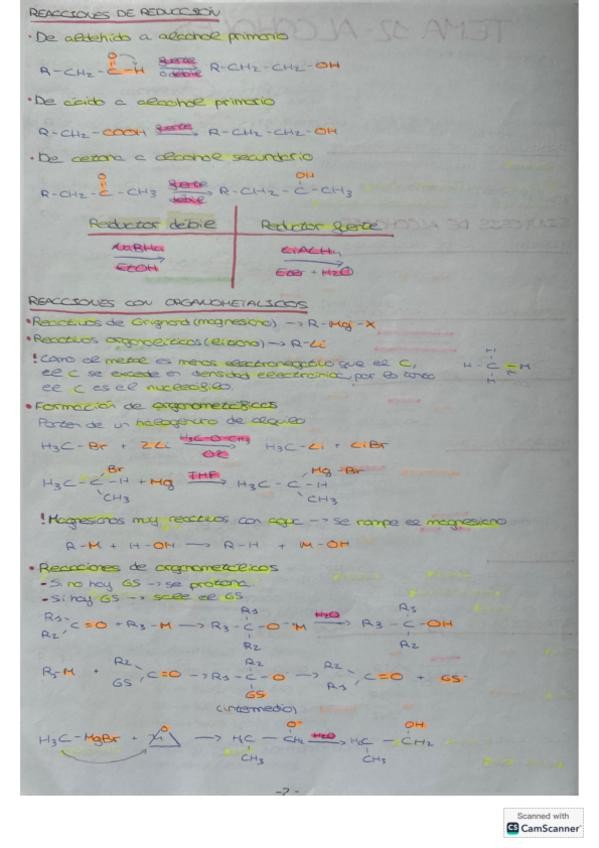 REACCIONES DE REDUCCIÓN
• De aldehído a alcohol primario
R-CH2-C-H fuerte o débil R-CH2-CH2-OH
O
• De ácido a alcohol primario
R-CH2-COOH fuerte R-CH2-CH2-OH
• De cetona a alcohol secundario
O OH
R-CH2-C-CH3 fuerte débil R-CH2-C-CH3
Reductor débil Reductor fuerte
NaBH4 LiAlH4
EtOH Eter + H2O
REACCIONES CON ORGANOMETALICOS
• Reactivos de Grignard (magnesiano) → R-Mg-X
• Reactivos organolíticos (litiano) → R-Li
! Como el metal es menos electronegativo que el C,
el C se excede en densidad electrónica, por lo tanto
el C es el nucleófilo.
H
H-C-M
H
• Formación de organometálicos
Parten de un halogenuro de alquilo
H3C-Br + 2Li H3C-O-CH3 H3C-Li + LiBr
Br Mg-Br
H3C-C-H + Mg THF → H3C-C-H
CH3 CH3
! Magnesianos muy reactivos con agua → se rompe el magnesiano
R-M + H-OH → R-H + M-OH
• Reacciones de organometálicos
- Si no hay GS → se protona
- Si hay GS → sale el GS
R1 R1 R1
C=O + R3-M → R3-C-O⁻M H2O → R3-C-OH
R2 R2 R2
R2 R2 R2
R3-M + C=O → R3-C-O⁻ → C=O + GS⁻
GS GS R3
(intermedio)
O O⁻ OH
H3C-MgBr + → H2C-CH2 H2O → H2C-CH2
CH3 CH3
-2-
Scanned with
CS CamScanner